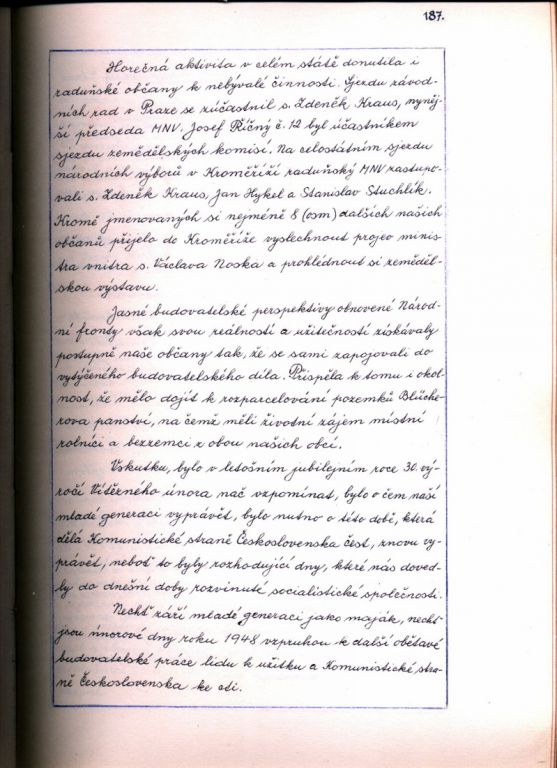 187.
Horečná aktivita v celém státě donutila i
raduňské občany k nebývalé činnosti. Sjezdu závod-
ních rad v Praze se zúčastnil s. Zdeněk Kraus, nyněj-
ší předseda MNV. Josef Říčný č. 12 byl účastníkem
sjezdu zemědělských komisí. Na celostátním sjezdu
národních výborů v Kroměříži raduňský MNV zastupo-
vali s. Zdeněk Kraus, Jan Hykel a Stanislav Stuchlík.
Kromě jmenovaných si nejméně 8 (osm) dalších našich
občanů přijelo do Kroměříže vyslechnout projev minis-
tra vnitra s. Václava Noska a prohlédnout si zeměděl-
skou výstavu.
Jasné budovatelské perspektivy obnovené Národ-
ní fronty však svou reálností a užitečností získávaly
postupně naše občany tak, že se sami zapojovali do
vytýčeného budovatelského díla. Přispěla k tomu i okol-
nost, že mělo dojít k rozparcelování pozemků Blüche-
rova panství, na čemž měli životní zájem místní
rolníci a bezzemci z obou našich obcí.
Vskutku, bylo v letošním jubilejním roce 30. vý-
ročí Vítězného února nač vzpomínat, bylo o čem naší
mladé generaci vyprávět, bylo nutno o této době, která
dělá Komunistické straně Československa čest, znovu vy-
právět, neboť to byly rozhodující dny, které nás doved-
ly do dnešní doby rozvinuté socialistické společnosti.
Nechť září mladé generaci jako maják, nechť
jsou únorové dny roku 1948 vzpruhou k další obětavé
budovatelské práce lidu k užitku a Komunistické stra-
ně Československa ke cti.